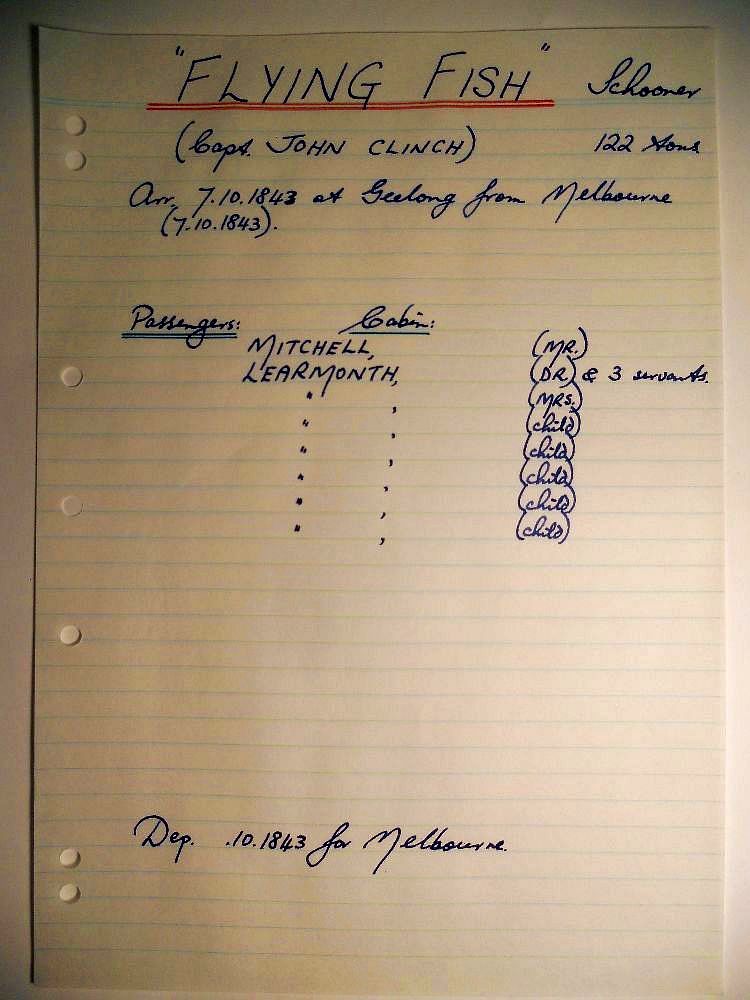 "FLYING FISH" Schooner
(Capt. JOHN CLINCH) 122 tons
Arr. 7.10.1843 at Geelong from Melbourne
(7.10.1843).
Passengers: Cabin:
MITCHELL, (MR.)
LEARMONTH, (DR.) & 3 servants.
" , (MRS.)
" , (child)
" , (child)
" , (child)
" , (child)
" , (child)
Dep. .10.1843 for Melbourne.